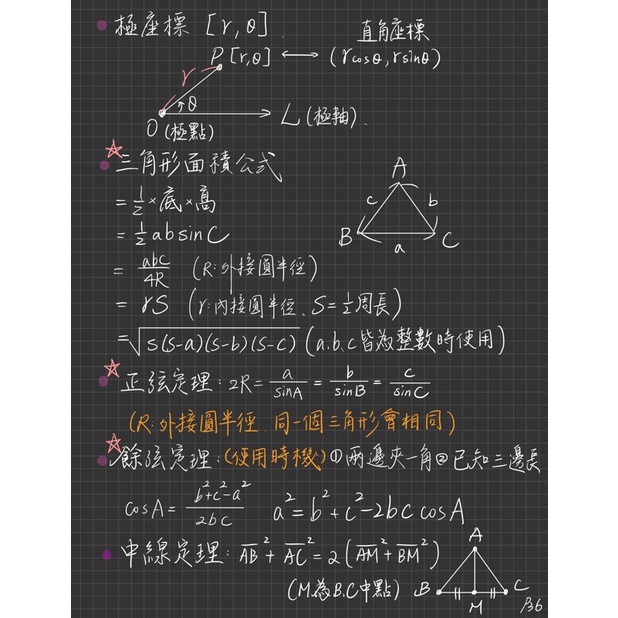 極座標 [r,θ]
直角座標
P[r,θ] ⟷ (rcosθ, rsinθ)
r
θ
O (極點)
L (極軸).
三角形面積公式
A
=½×底×高
c
b
=½absinC
B
a
C
=abc/4R (R:外接圓半徑)
=rS (r:內接圓半徑、S=½周長)
=√s(s-a)(s-b)(s-c) (a.b.c皆為整數時使用)
正弦定理:2R=a/sinA=b/sinB=c/sinC
(R:外接圓半徑 同一個三角形會相同)
餘弦定理:(使用時機)①兩邊夾一角②已知三邊長
cosA=b²+c²-a²/2bc a²=b²+c²-2bc cosA
中線定理:A̅B̅²+A̅C̅²=2(A̅M̅²+B̅M̅²)
A
(M為B.C中點)
B
M
C
P36